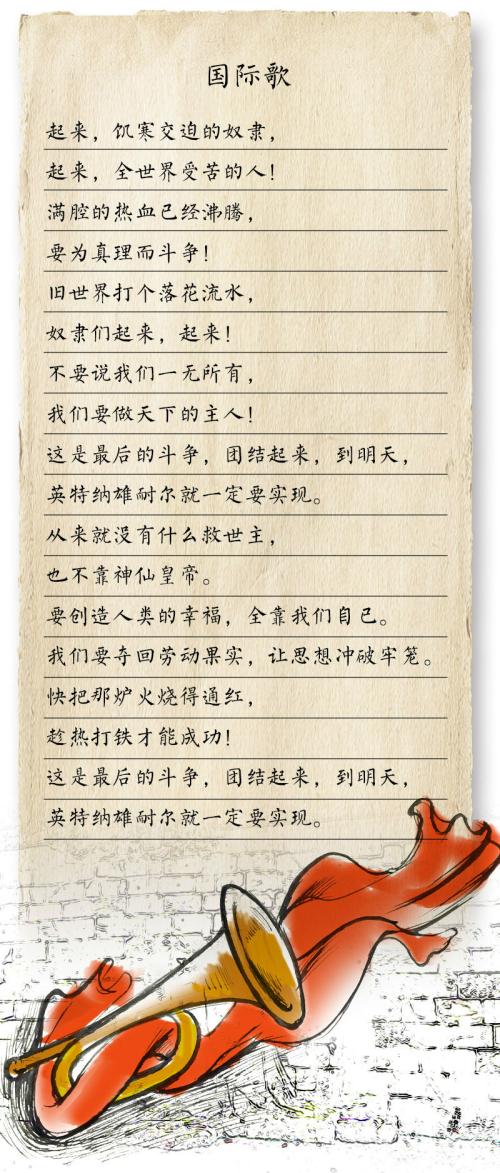 国际歌
起来，饥寒交迫的奴隶，
起来，全世界受苦的人！
满腔的热血已经沸腾，
要为真理而斗争！
旧世界打个落花流水，
奴隶们起来，起来！
不要说我们一无所有，
我们要做天下的主人！
这是最后的斗争，团结起来，到明天，
英特纳雄耐尔就一定要实现。
从来就没有什么救世主，
也不靠神仙皇帝。
要创造人类的幸福，全靠我们自己。
我们要夺回劳动果实，让思想冲破牢笼。
快把那炉火烧得通红，
趁热打铁才能成功！
这是最后的斗争，团结起来，到明天，
英特纳雄耐尔就一定要实现。